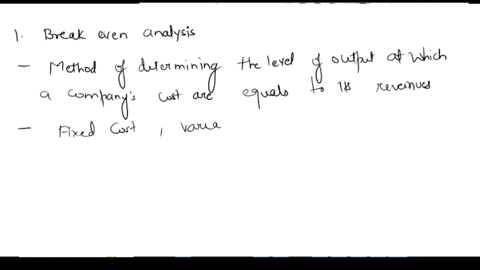 1. Break even analysis
- Method of determining the level of output at which
a company's cost are equals to its revenues
- Fixed Cost, varia